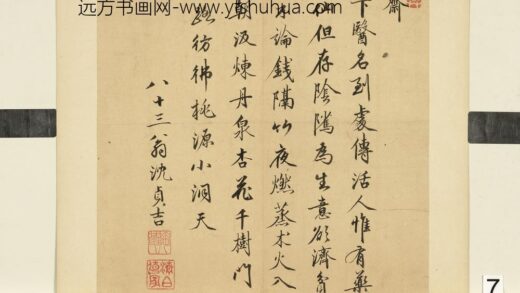 远方书画网-www.yfshuhua.com
齋
下醫名到處傳活人惟有藥
仙但存陰隲為生意欲濟貧
論錢隔竹夜燃蒸朮火入
朝汲煉丹泉杏花千樹門
彷彿桃源小洞天
八十三翁沈貞吉
7